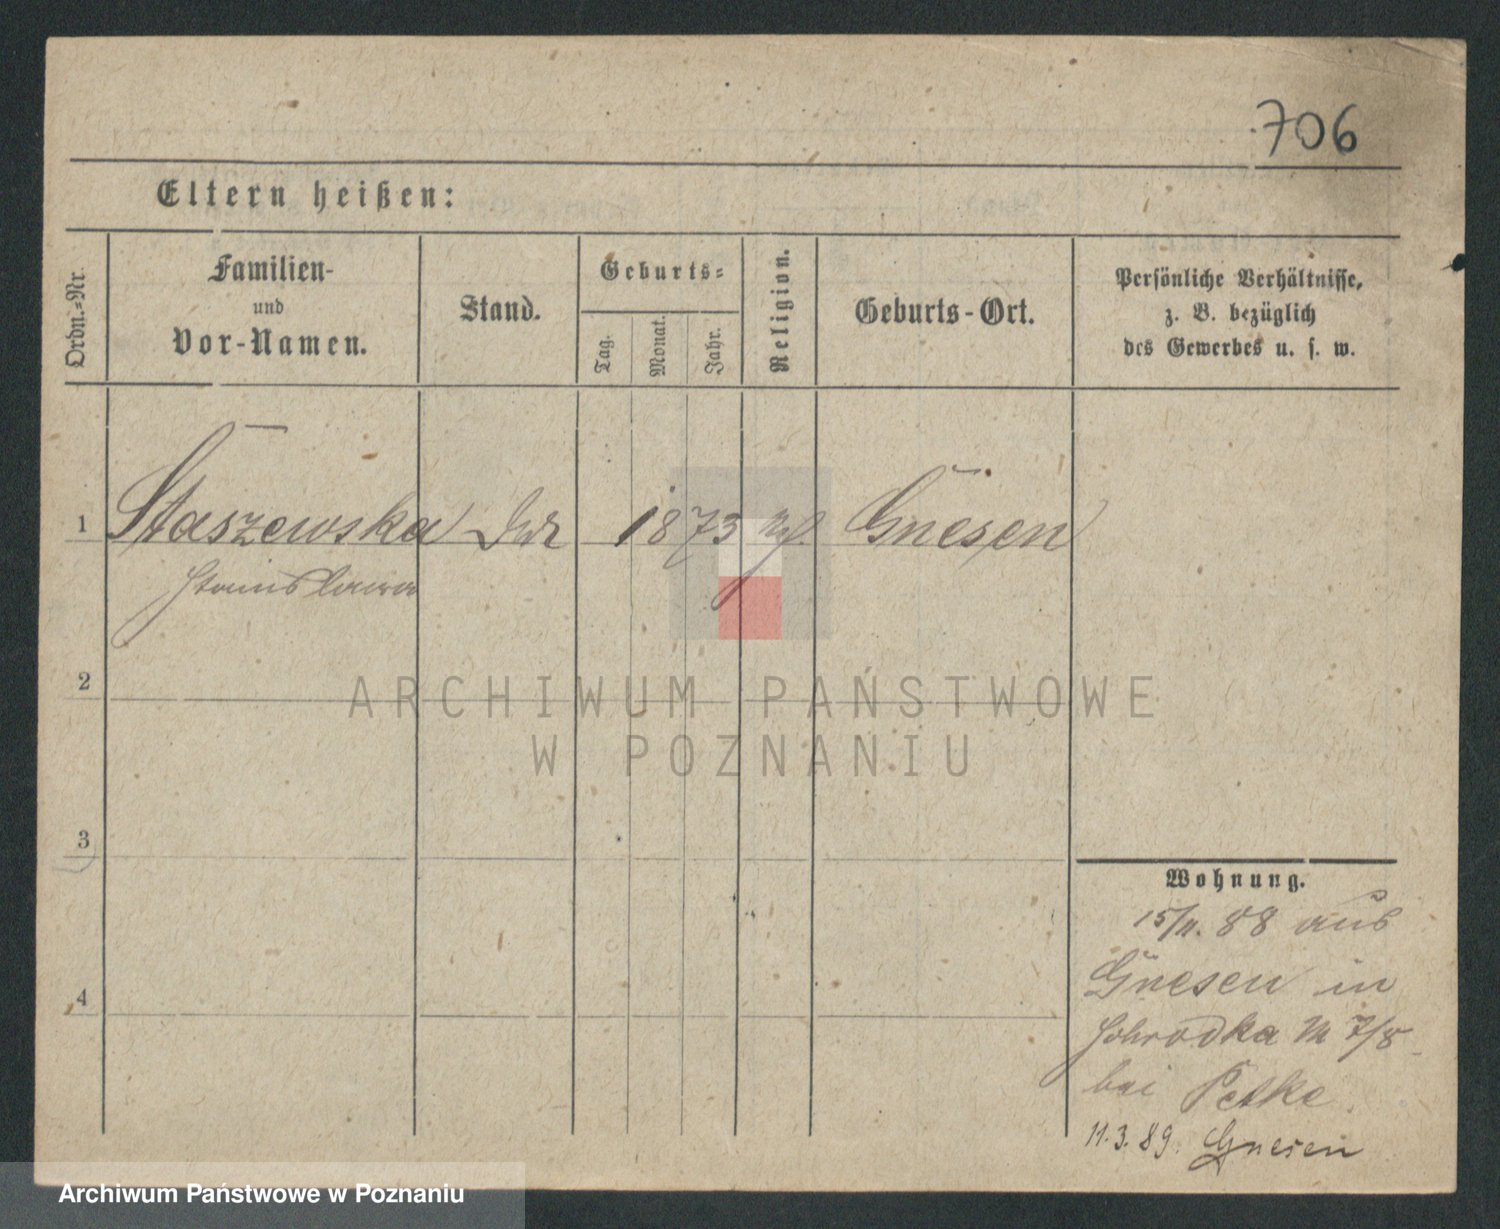 706
Eltern heißen:
Ordn.-Nr.
Familien-
und
Vor-Namen.
Stand.
Geburts-
Tag.
Monat.
Jahr.
Religion.
Geburts-Ort.
Persönliche Verhältnisse,
z. B. bezüglich
des Gewerbes u. s. w.
1 Staszewska 1873 Gnesen
Stanislawa
2
3
4
ARCHIWUM PAŃSTWOWE
W POZNANIU
Wohnung.
15/11. 88 aus
Gnesen in
Schrodka 7/8
bei Petke
11.3.89. Gnesen
Archiwum Państwowe w Poznaniu